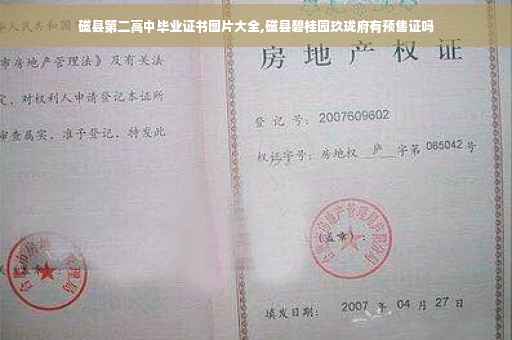 磁县第二高中毕业证书图片大全,磁县碧桂园玖珑府有预售证吗
人民共和国
市房地产管理法》及有关法
定，对权利人申请登记本证所
审查属实，准予登记，特发此
房地产权证
登记号：2007609602
权证字号：房地权 庐 字第 085042 号
(盖章)：
填发日期：2007 年 04 月 27 日